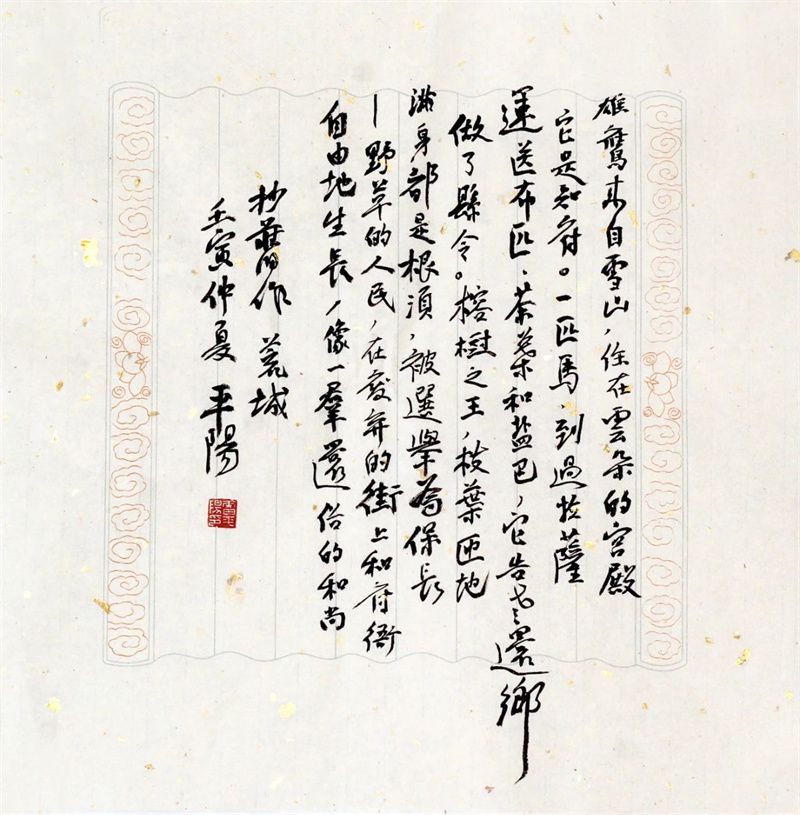 雄鷹来自雪山，住在雲朵的宫殿
它是知府。一匹馬，到過拉薩
運送布匹、茶葉和盐巴，它告老還鄉
做了縣令。榕樹之王，枝葉匝地
满身都是根須，被選舉為保長
—野草的人民，在废弃的街上和府衙
自由地生長，像一羣還俗的和尚
抄舊作 荒城
壬寅仲夏 平陽